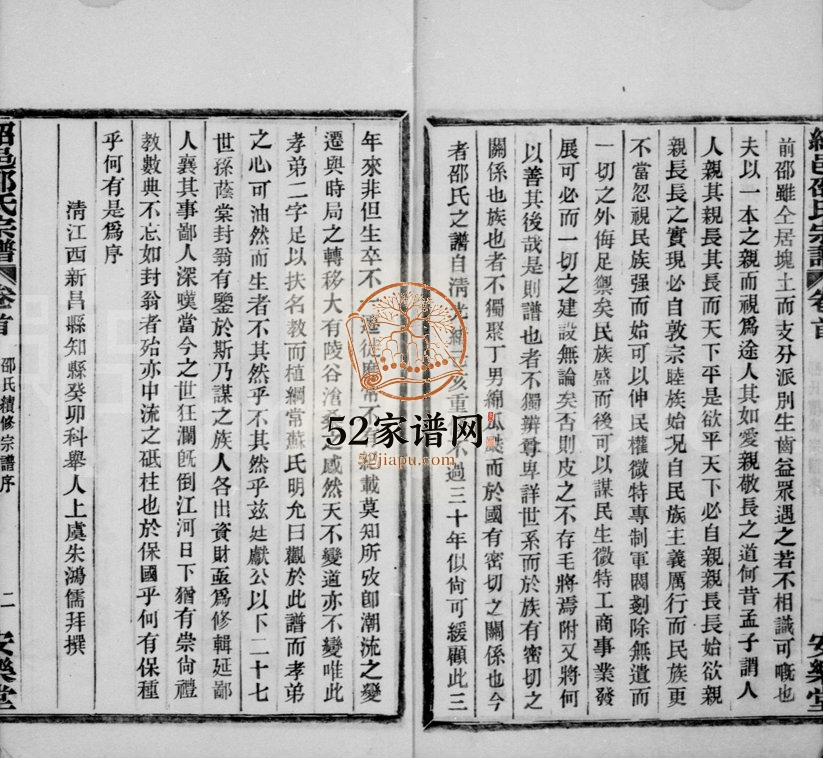 前邵雖仝居塊土而支分派別生齒益眾遇之若不相識可嘅也
夫以一本之親而視爲途人其如愛親敬長之道何昔孟子謂人
人親其親長其長而天下平是欲平天下必自親親長長始欲親
親長長之實現必自敦宗睦族始况自民族主義厲行而民族更
不當忽視民族强而始可以伸民權微特專制軍閥剗除無遺而
一切之外侮足禦矣民族盛而後可以謀民生微特工商事業發
展可必而一切之建設無論矣否則皮之不存毛將焉附又將何
以善其後哉是則譜也者不獨辨尊卑詳世系而於族有密切之
關係也族也者不獨聚丁男綿瓜瓞而於國有密切之關係也今
者邵氏之譜自清光緒 亥重 不過三十年似尙可緩顧此三
年來非但生卒不 遷徙靡常不 紀載莫知所攷卽潮流之變
遷與時局之轉移大有陵谷滄桑之感然天不變道亦不變唯此
孝弟二字足以扶名教而植綱常蘇氏明允曰觀於此譜而孝弟
之心可油然而生者不其然乎不其然乎兹廷獻公以下二十七
世孫蔭棠封翁有鑒於斯乃謀之族人各出資財亟爲修輯延鄙
人襄其事鄙人深嘆當今之世狂瀾旣倒江河日下猶有崇尙禮
教數典不忘如封翁者殆亦中流之砥柱也於保國乎何有保種
乎何有是爲序
清江西新昌縣知縣癸卯科舉人上虞朱鴻儒拜撰
紹邑邵氏宗譜 卷首 邵氏續修宗譜序 二 安樂堂
52家谱网
52jiapu.com